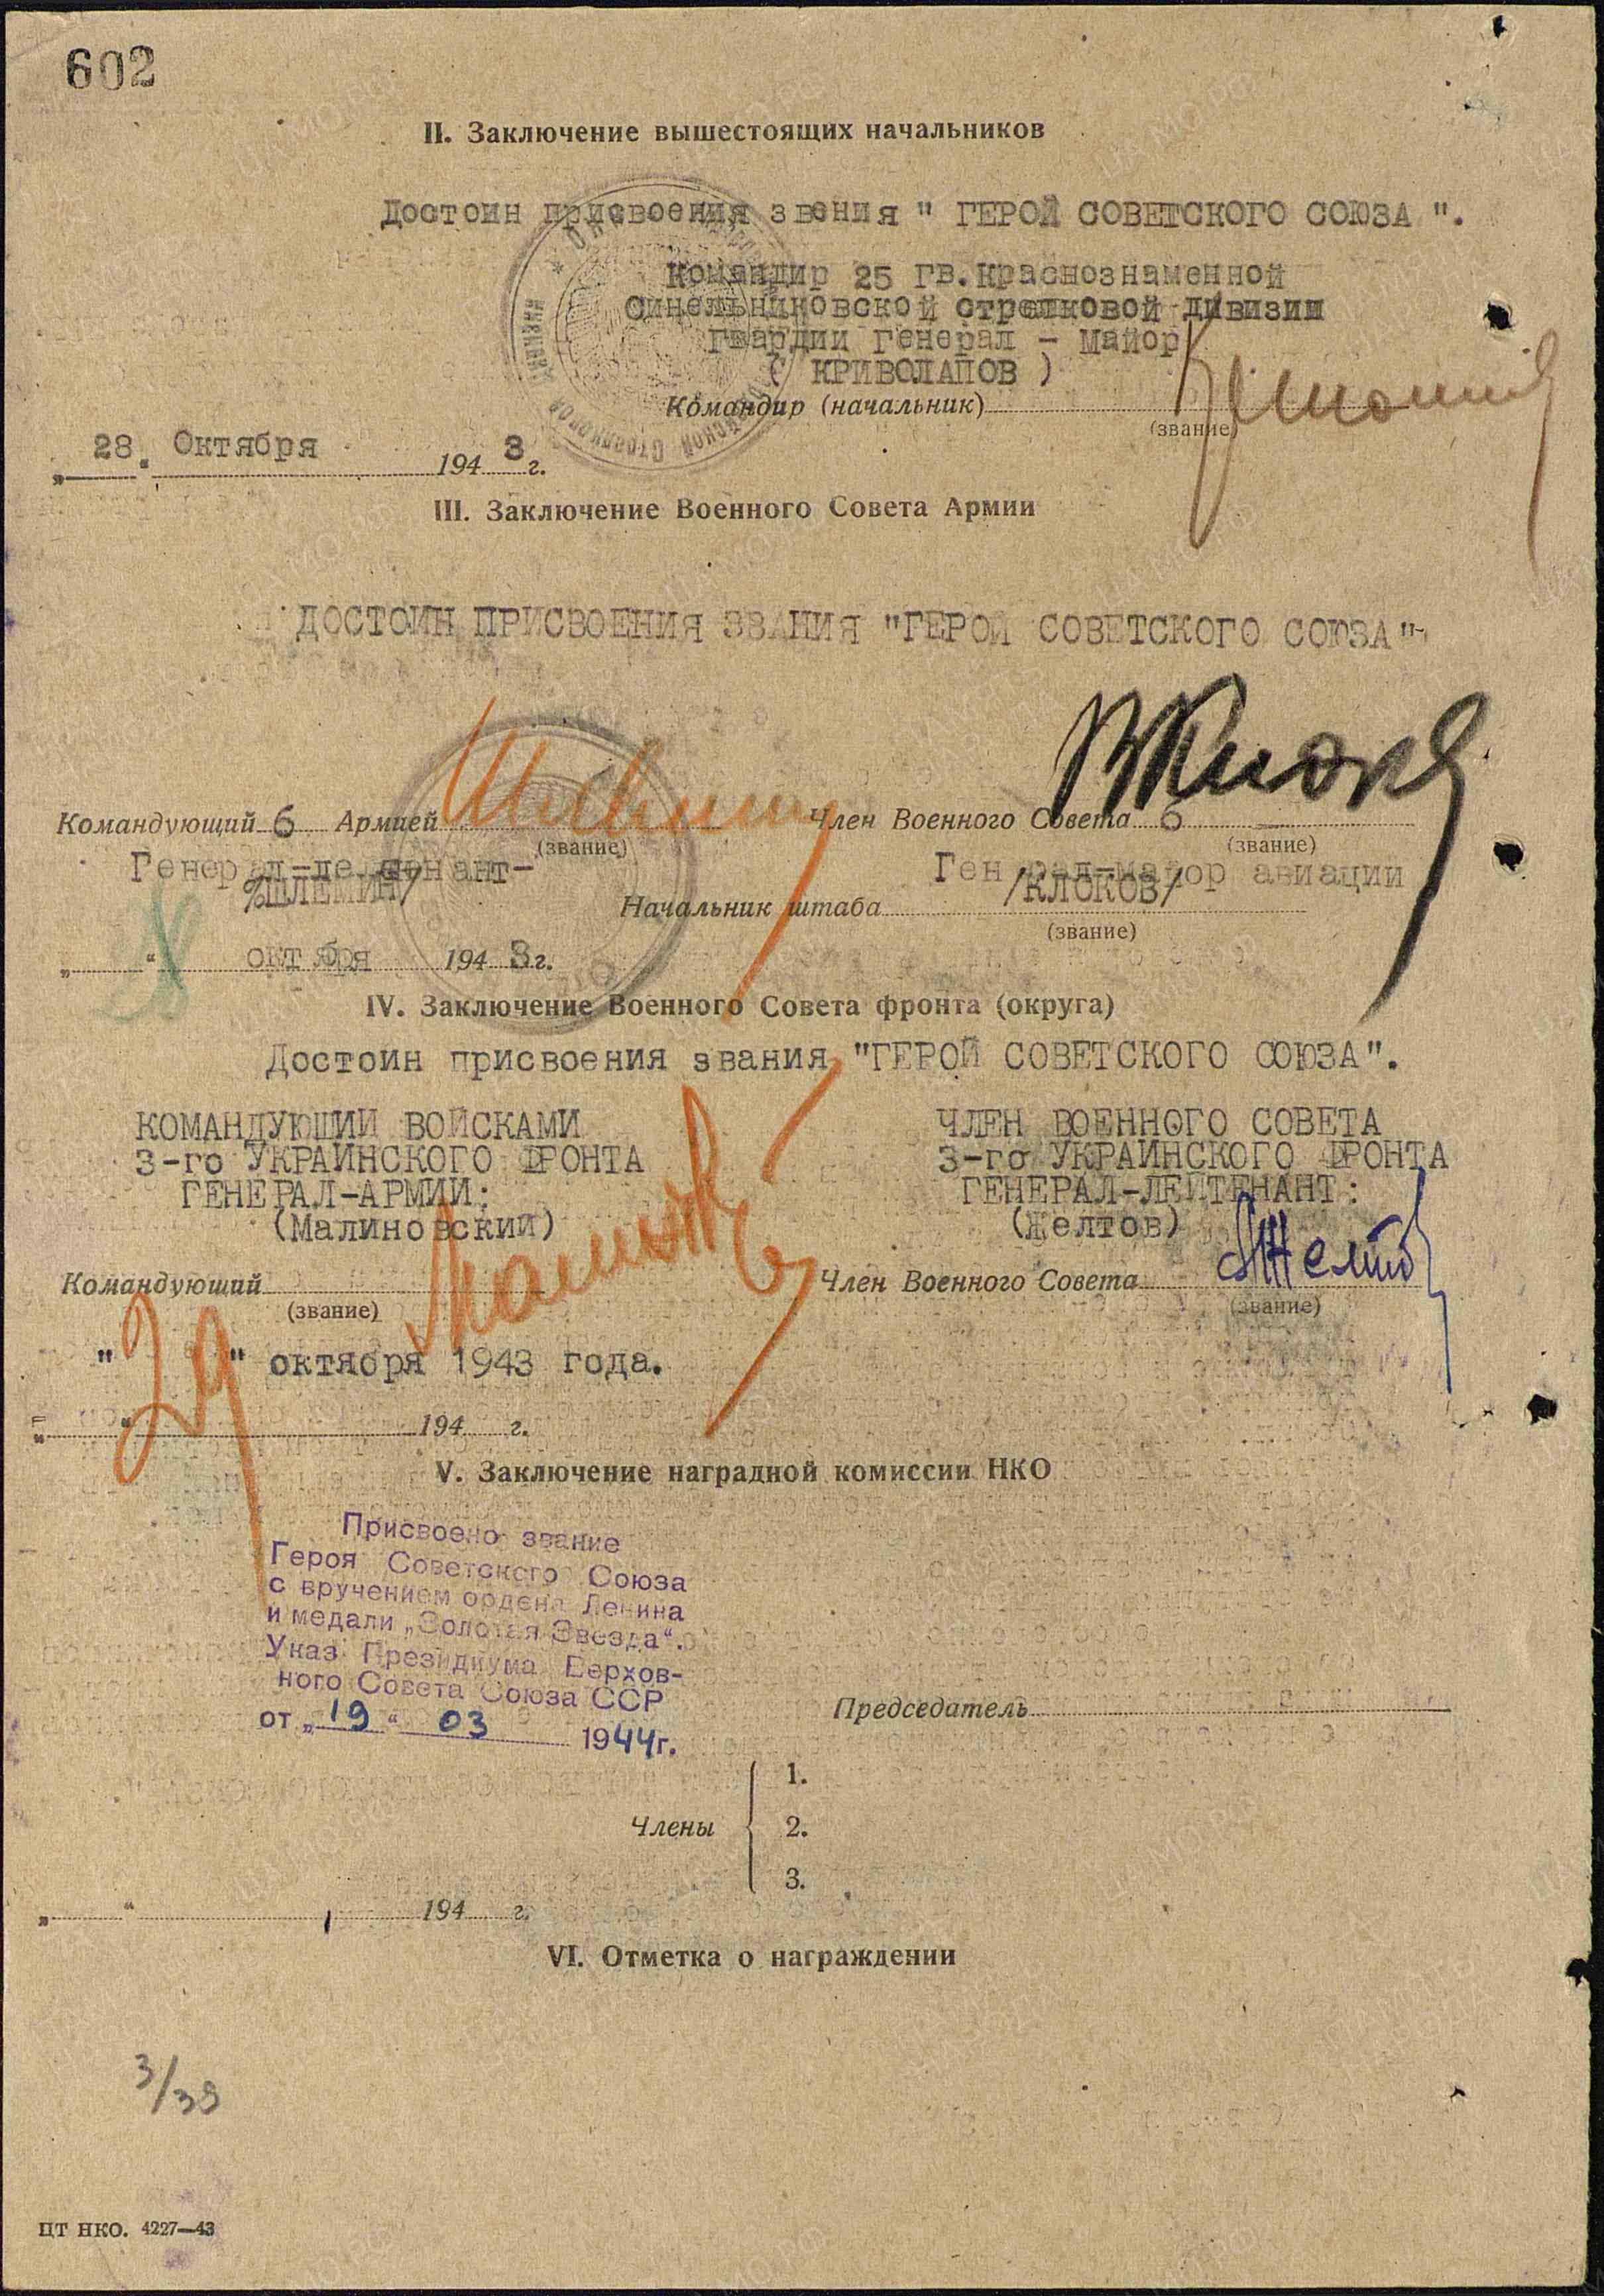 602
II. Заключение вышестоящих начальников
Достоин присвоения звения " ГЕРОЙ СОВЕТСКОГО СОЮЗА ".
Командир 25 Гв.Краснознаменной
Синельниковской стрелковой дивизии
Гвардии Генерал - Майор
( КРИВОЛАПОВ )
Командир (начальник)
(звание)
„ 28. Октября 194 3 г.
III. Заключение Военного Совета Армии
ДОСТОИН ПРИСВОЕНИЯ ЗВАНИЯ "ГЕРОЙ СОВЕТСКОГО СОЮЗА"
Командующий 6 Армией Член Военного Совета 6
(звание) (звание)
Генерал-лейтенант- Генерал-майор авиации
/ШЛЕМИН/ /КЛОКОВ/
Начальник штаба
(звание)
„ “ октября 194 3 г.
IV. Заключение Военного Совета фронта (округа)
Достоин присвоения звания "ГЕРОЙ СОВЕТСКОГО СОЮЗА".
КОМАНДУЮЩИЙ ВОЙСКАМИ ЧЛЕН ВОЕННОГО СОВЕТА
3-го УКРАИНСКОГО ФРОНТА 3-го УКРАИНСКОГО ФРОНТА
ГЕНЕРАЛ-АРМИИ: ГЕНЕРАЛ-ЛЕЙТЕНАНТ:
(Малиновский) (Желтов)
Командующий Член Военного Совета
(звание) (звание)
"29" октября 1943 года.
„ “ 194 г.
V. Заключение наградной комиссии НКО
Присвоено звание
Героя Советского Союза
с вручением ордена Ленина
и медали „Золотая Звезда“.
Указ Президиума Верхов-
ного Совета Союза ССР
от „ 19 “ 03 1944г.
Председатель
1.
Члены 2.
3.
„ “ 194 г.
VI. Отметка о награждении
3/39
ЦТ НКО. 4227—43